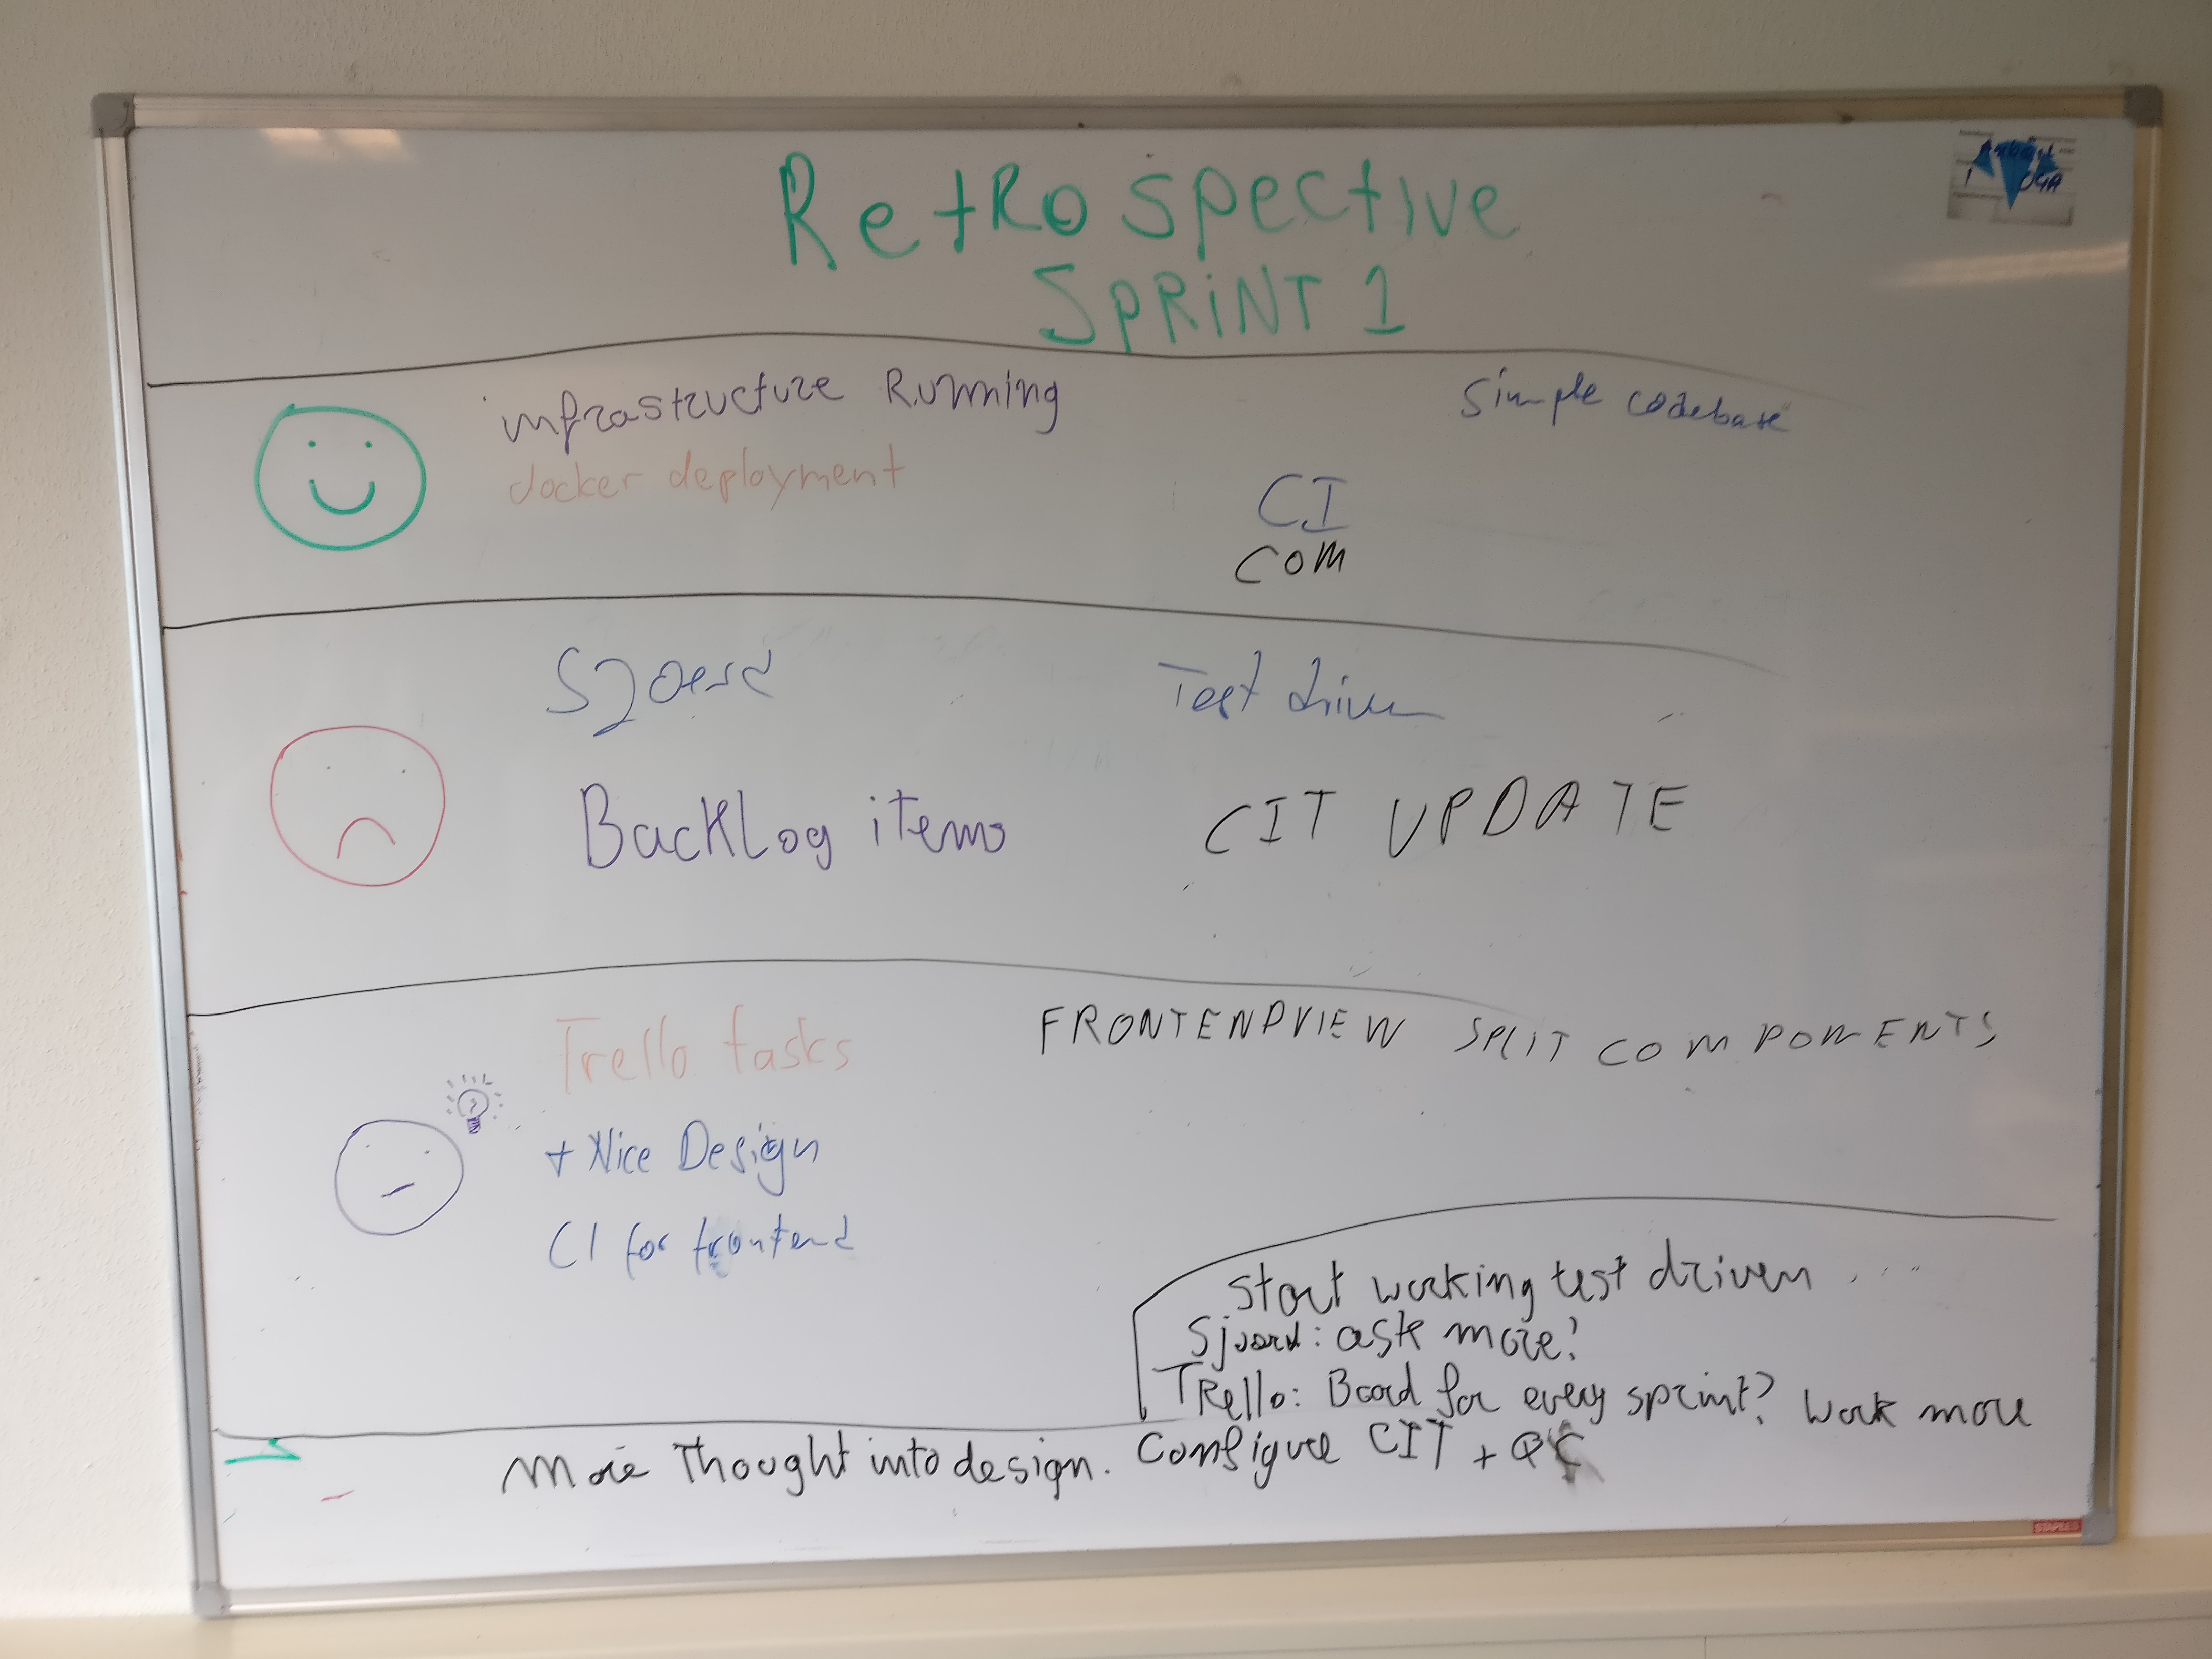 Retrospective
SPRINT 1
infrastructure Running
simple codebase
docker deployment
CI
COM
Sjoerd
Test driven
Backlog items
CIT UPDATE
Trello tasks
FRONTENDVIEW SPLIT COMPONENTS
?
+ Nice Design
CI for frontend
Start working test driven ...
Sjoerd: ask more!
Trello: Board for every sprint? Work more
More thought into design. Configure CIT +
STAPLES